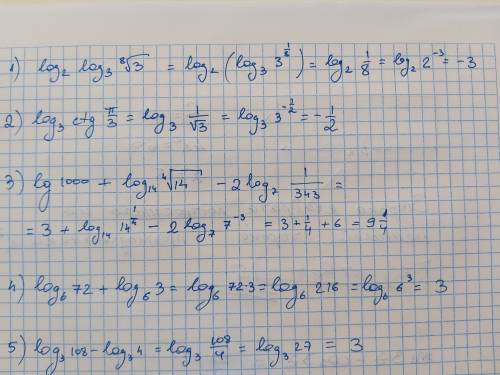 1) log₂ log₃ ⁸√3 = log₂ (log₃ 3^(1/8)) = log₂ 1/8 = log₂ 2⁻³ = -3
2) log₃ ctg π/3 = log₃ 1/√3 = log₃ 3^(-1/2) = -1/2
3) lg 1000 + log₁₄ ⁴√14 - 2 log₇ 1/343 =
= 3 + log₁₄ 14^(1/4) - 2 log₇ 7⁻³ = 3 + 1/4 + 6 = 9 1/4
4) log₆ 72 + log₆ 3 = log₆ 72·3 = log₆ 216 = log₆ 6³ = 3
5) log₃ 108 - log₃ 4 = log₃ 108/4 = log₃ 27 = 3